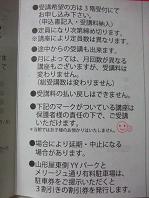 ●受講希望の方は3階受付にて
お申し込み下さい。
(申込書記入・受講料納入)
●定員になり次第締め切ります。
●講座により定員数は異なります。
●途中からの受講も出来ます。
●月によっては、月回数が異なる
講座もございますが、受講料は
変わりません。
(総受講数は変わりません)
●受講料の払い戻しはできません。
●下記のマークがついている講座は
保護者様の責任の下で、ご受講
いただけます。
●場合により延期・中止になる
場合があります。
●山形屋東側YYパークと
メリージュ通り有料駐車場は、
駐車券をご提示いただくと
3割引きの割引券を発行します。